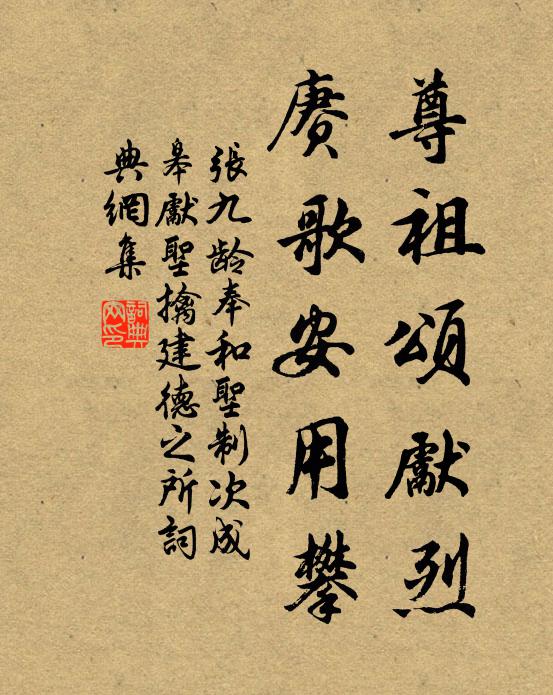 尊祖頌獻烈
賡歌安用攀
張九龄奉和聖制次成
皋獻聖擒建德之所詞
典網集
詞典
网印